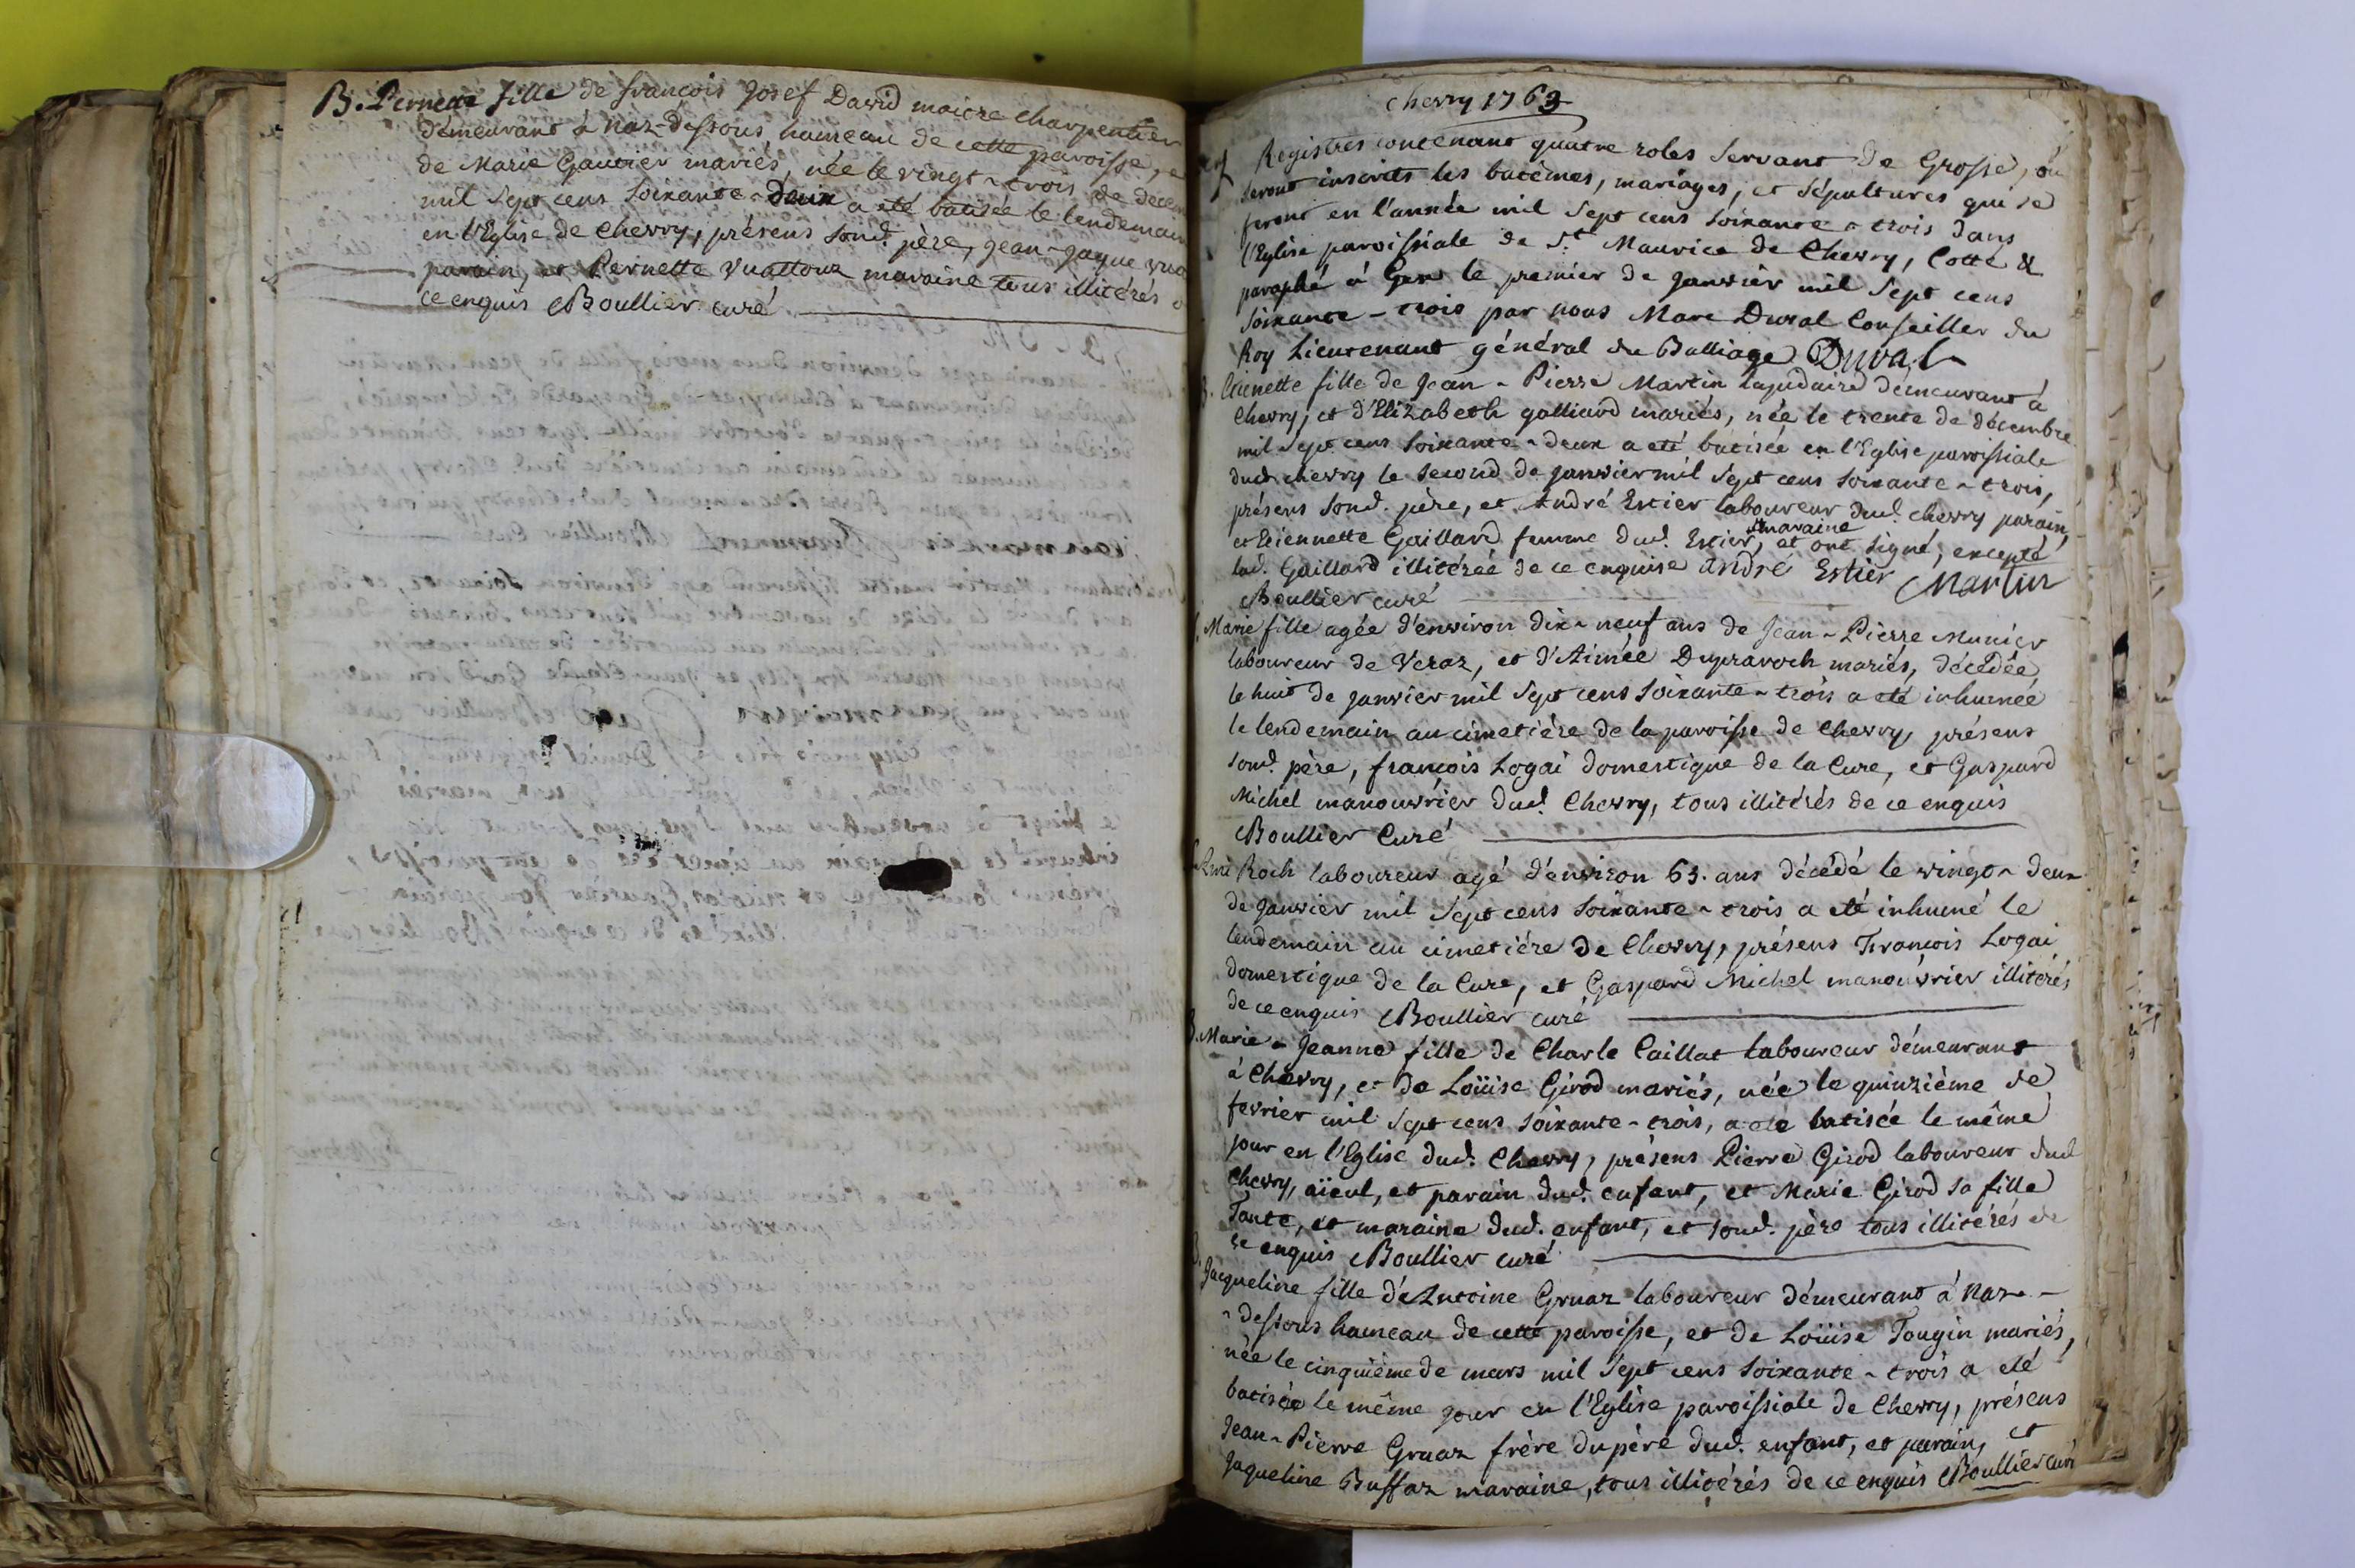 B. Pernette fille de francois Josef David maitre charpentier
démeurant à Naz-dessous hameau de cette paroisse, e
de Marie Gautier mariés, née le vingt-trois de décem
mil sept cens soixante-deux a eté batisée le lendemain
en l'Eglise de Chevry, présens sond. père, Jean-Jaque vua
parain, et Pernette Vuattoux maraine tous illitérés d
ce enquis Boullier curé
Chevry 1763
Registres contenant quatre roles servant de Grosse, où
seront inscrits les batêmes, mariages, et sépultures qui se
feront en l'année mil sept cens soixante-trois dans
l'Eglise paroissiale de St. Maurice de Chevry, Cotté &
paraphé à Gex le premier de janvier mil sept cens
soixante-trois par nous Marc Duval Conseiller du
Roy Lieutenant général du Balliage Duval
B. Etienette fille de Jean-Pierre Martin lapidaire démeurant à
Chevry, et d'Elizabeth galliard mariés, née le trente de décembre
mil sept cens soixante-deux a eté batisée en l'Eglise paroissiale
dud. chevry le second de janvier mil sept cens soixante-trois,
présens sond. père, et André Estier laboureur dud. chevry parain,
et Etiennette Gaillard femme dud. Estier, maraine et ont signé, excepté
lad. Gaillard illitérée de ce enquise andré Estier Martin
Boullier curé
Marie fille agée d'environ dix-neuf ans de Jean-Pierre Munier
laboureur de Veraz, et d'Aimée Dupraroch mariés, décédée
le huit de janvier mil sept cens soixante-trois a eté inhumée
le lendemain au cimetiére de la paroisse de Chevry, présens
sond. père, francois Logai domestique de la Cure, et Gaspard
Michel manouvrier dud. Chevry, tous illitérés de ce enquis
Boullier Curé
Amé Roch laboureur agé d'environ 63. ans décédé le vingt-deux
de janvier mil sept cens soixante-trois a eté inhumé le
lendemain au cimetiére de Chevry, présens Francois Logai
domestique de la Cure, et Gaspard Michel manouvrier illitérés
de ce enquis Boullier curé
B. Marie-Jeanne fille de Charle Caillat laboureur démeurant
à Chevry, et de Loüise Girod mariés, née le quinzième de
fevrier mil sept cens soixante-trois, a eté batisée le même
jour en l'Eglise dud. Chevry, présens Pierre Girod laboureur dud
Chevry, aïeul, et parain dud. enfant, et Marie Girod sa fille
Tante, et maraine dud. enfant, et sond. père tous illitérés de
ce enquis Boullier curé
B. Jacqueline fille d'Antoine Gruaz laboureur démeurant à Naz-
-dessous hameau de cette paroisse, et de Loüise Tougin mariés,
née le cinquième de mars mil sept cens soixante-trois a eté
batisée le même jour en l'Eglise paroissiale de Chevry, présens
Jean-Pierre Gruaz frère du père dud. enfant, et parain, et
Jaqueline Buffaz maraine, tous illitérés de ce enquis Boullier curé